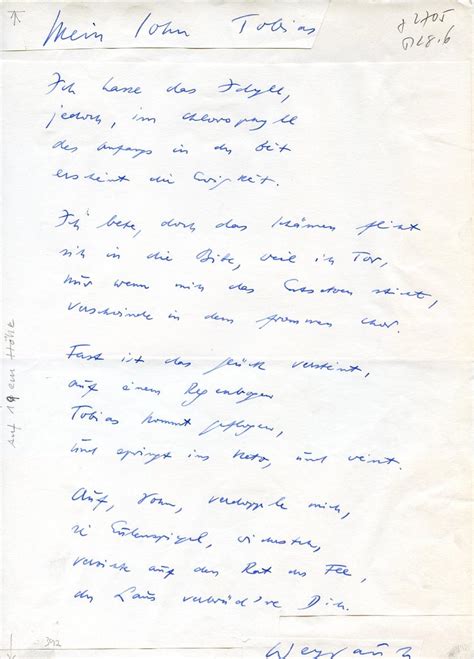 Mein Sohn Tobias
+ 2705
D 28.6
Ich hasse das Idyll,
jedoch, im Chlorophyll
des Anfangs in der Zeit
erscheint die Ewigkeit.
Ich bete, doch das Schämen flicht
sich in die Bitte, weil ich Tor,
nur wenn mich das Entsetzen sticht,
verschwinde in dem frommen Chor.
Fast ist das Glück versteint,
auf einem Regenbogen
Tobias kommt geflogen,
und springt ins Netz, und weint.
Auf, Sohn, verdopple mich,
sei Eulenspiegel,
verzichte auf den Rat der Fee,
Dich.
auf 19 cm Höhe
Weyrauch